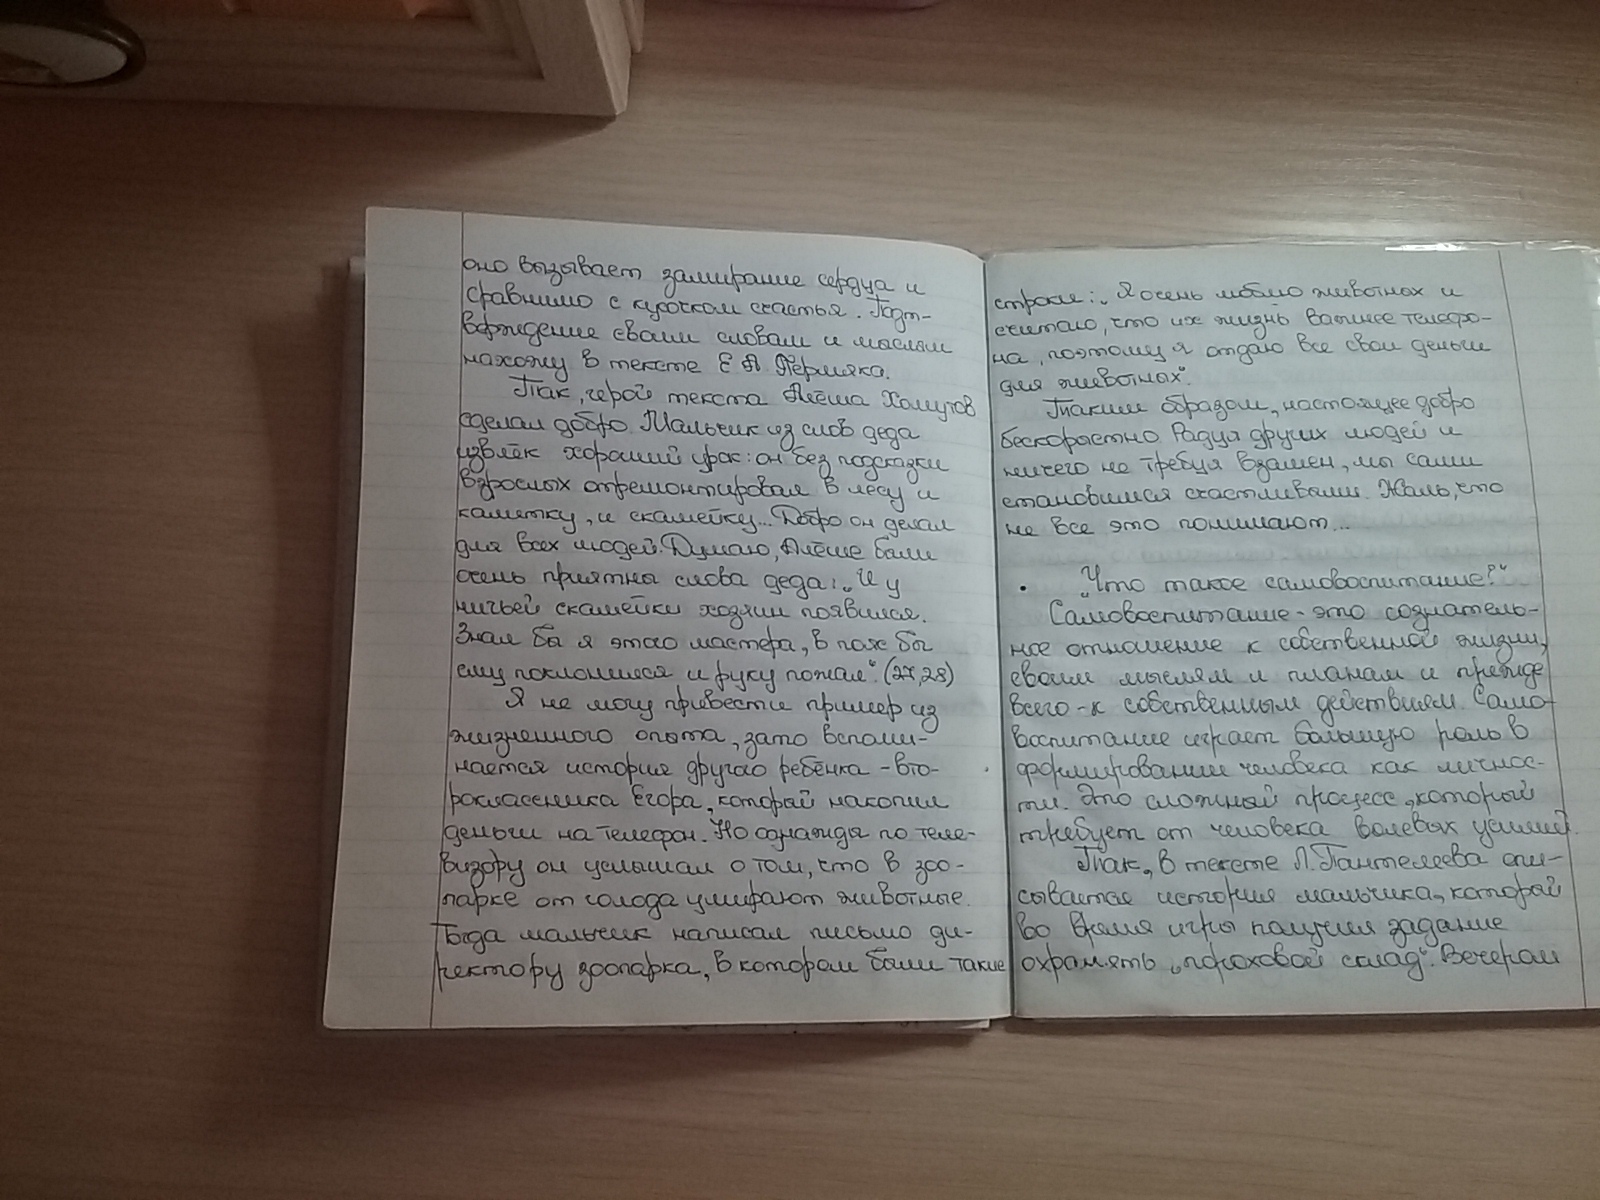 оно вызывает замирание сердца и
сравнимо с кусочком счастья. Подт-
верждение своим словам и мыслям
нахожу в тексте Е А Пермяка.
Так, герой текста Алёша Хомутов
сделал добро. Мальчик из слов деда
извлёк хороший урок: он без подсказки
взрослых отремонтировал в лесу и
калитку, и скамейку... Добро он делал
для всех людей. Думаю, Алёше были
очень приятны слова деда: „И у
ничьей скамейки хозяин появился.
Знал бы я этого мастера, в пояс бы
ему поклонился и руку пожал". (27,28)
Я не могу привести пример из
жизненного опыта, зато вспоми-
нается история другого ребёнка - вто-
роклассника Егора, который накопил
деньги на телефон. Но однажды по теле-
визору он услышал о том, что в зоо-
парке от голода умирают животные.
Тогда мальчик написал письмо ди-
ректору зоопарка, в котором были такие
строки: „Я очень люблю животных и
считаю, что их жизнь важнее телефо-
на, поэтому я отдаю все свои деньги
для животных".
Таким образом, настоящее добро
бескорыстно. Радуя других людей и
ничего не требуя взамен, мы сами
становимся счастливыми. Жаль, что
не все это понимают...
• „Что такое самовоспитание?"
Самовоспитание - это сознатель-
ное отношение к собственной жизни,
своим мыслям и планам и прежде
всего - к собственным действиям. Само-
воспитание играет большую роль в
формировании человека как личнос-
ти. Это сложный процесс, который
требует от человека волевых усилий.
Так, в тексте Л. Пантелеева опи-
сывается история мальчика, который
во время игры получил задание
охранять „пороховой склад". Вечером